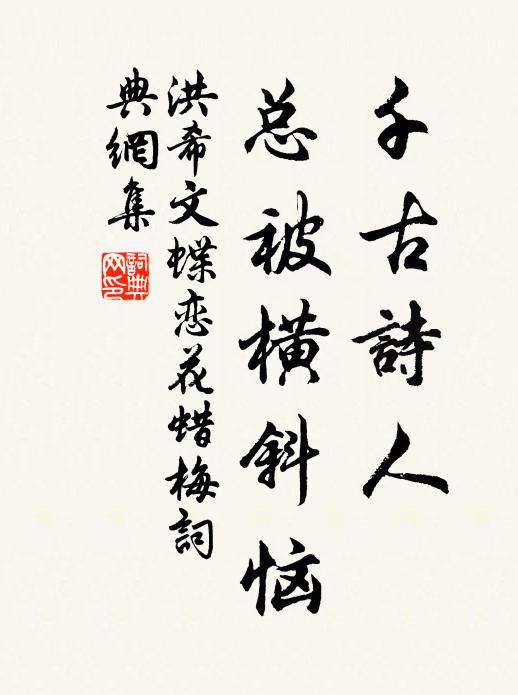 千古詩人
总被橫斜恼
洪希文蝶恋花蜡梅詞
典網集
詞典网印